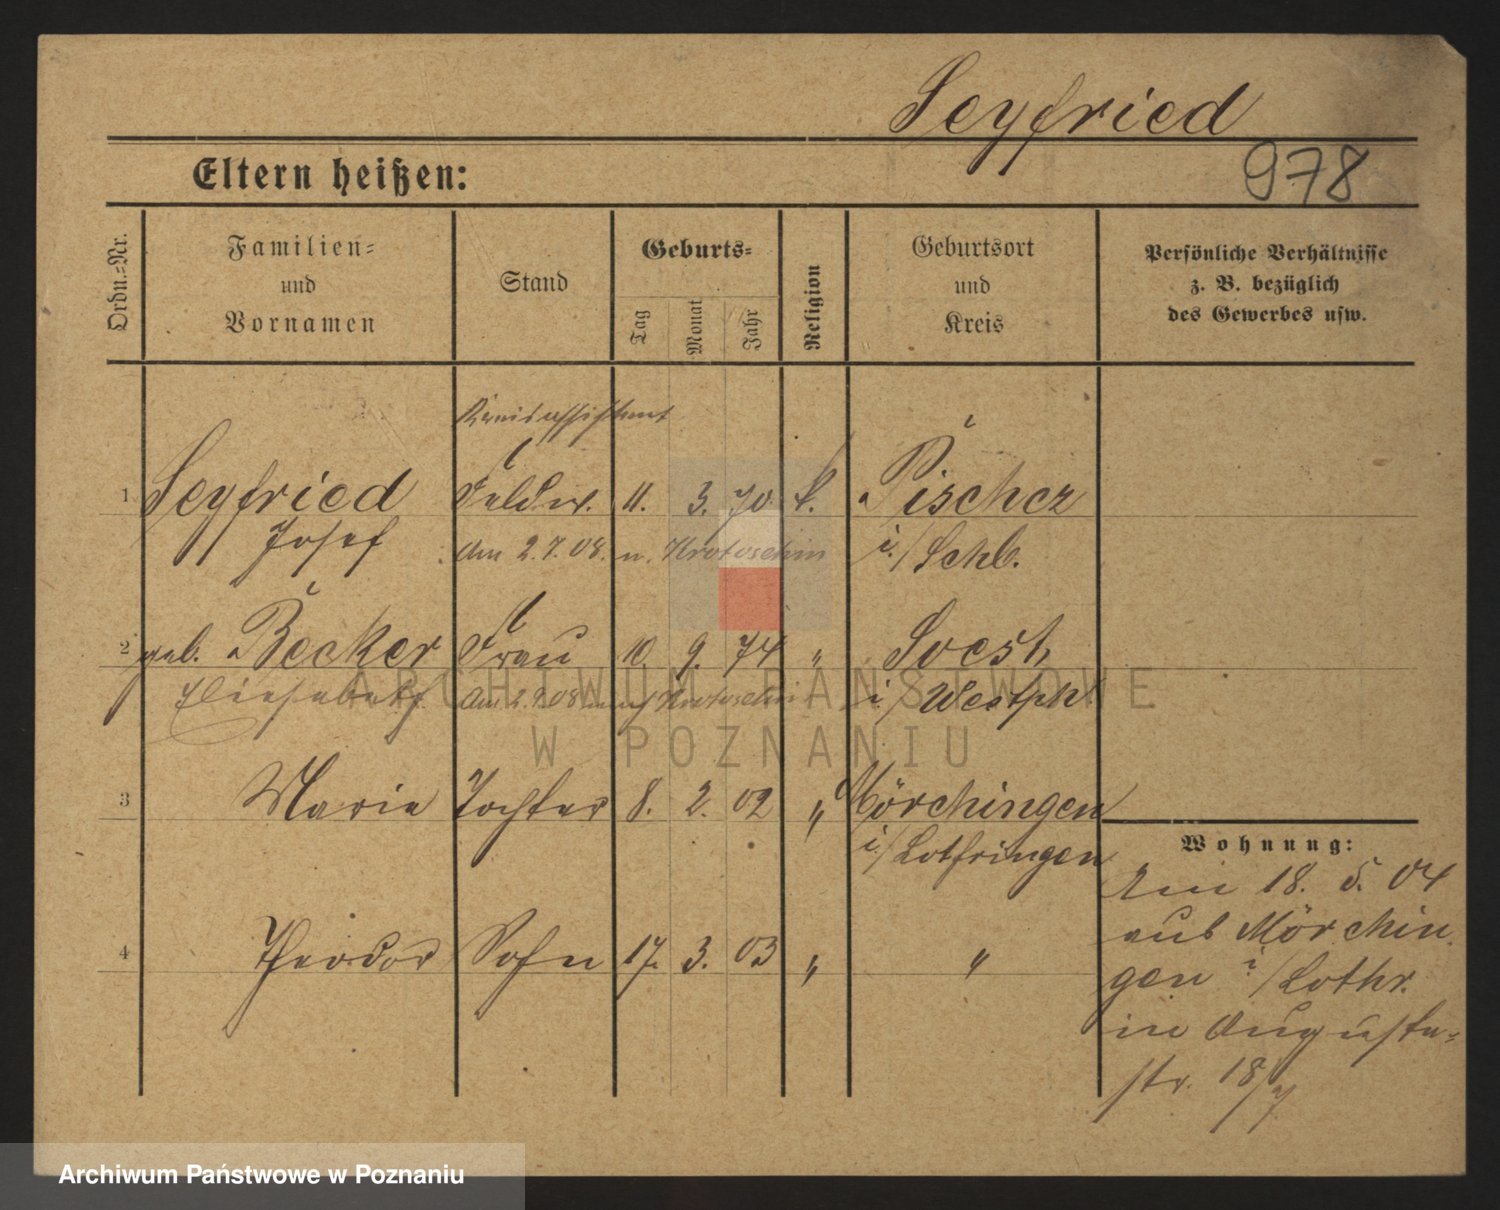 Seyfried
978
Eltern heißen:
Ordn.-Nr.
Familien-
und
Vornamen
Stand
Geburts-
Tag
Monat
Jahr
Religion
Geburtsort
und
Kreis
Persönliche Verhältnisse
z. B. bezüglich
des Gewerbes usw.
Kreisassistent
1 Seyfried Feldw. 11. 3. 70 k. Pischcz
Josef am 2.7.08. n. Krotoschin i./Schl.
2 geb. Becker Frau 10. 9. 74 " Soest
Eliesabeth am 2.9.08 nach Krotoschin i/Westph
3 Marie Tochter 8. 2. 02 " Mörchingen
i./Lothringen
4 Theodor Sohn 17. 3. 03 " "
Wohnung:
Am 18. 5. 04
aus Mörchin
gen i/Lothr.
in Augusta-
str. 18/7
ARCHIWUM PAŃSTWOWE
W POZNANIU
Archiwum Państwowe w Poznaniu